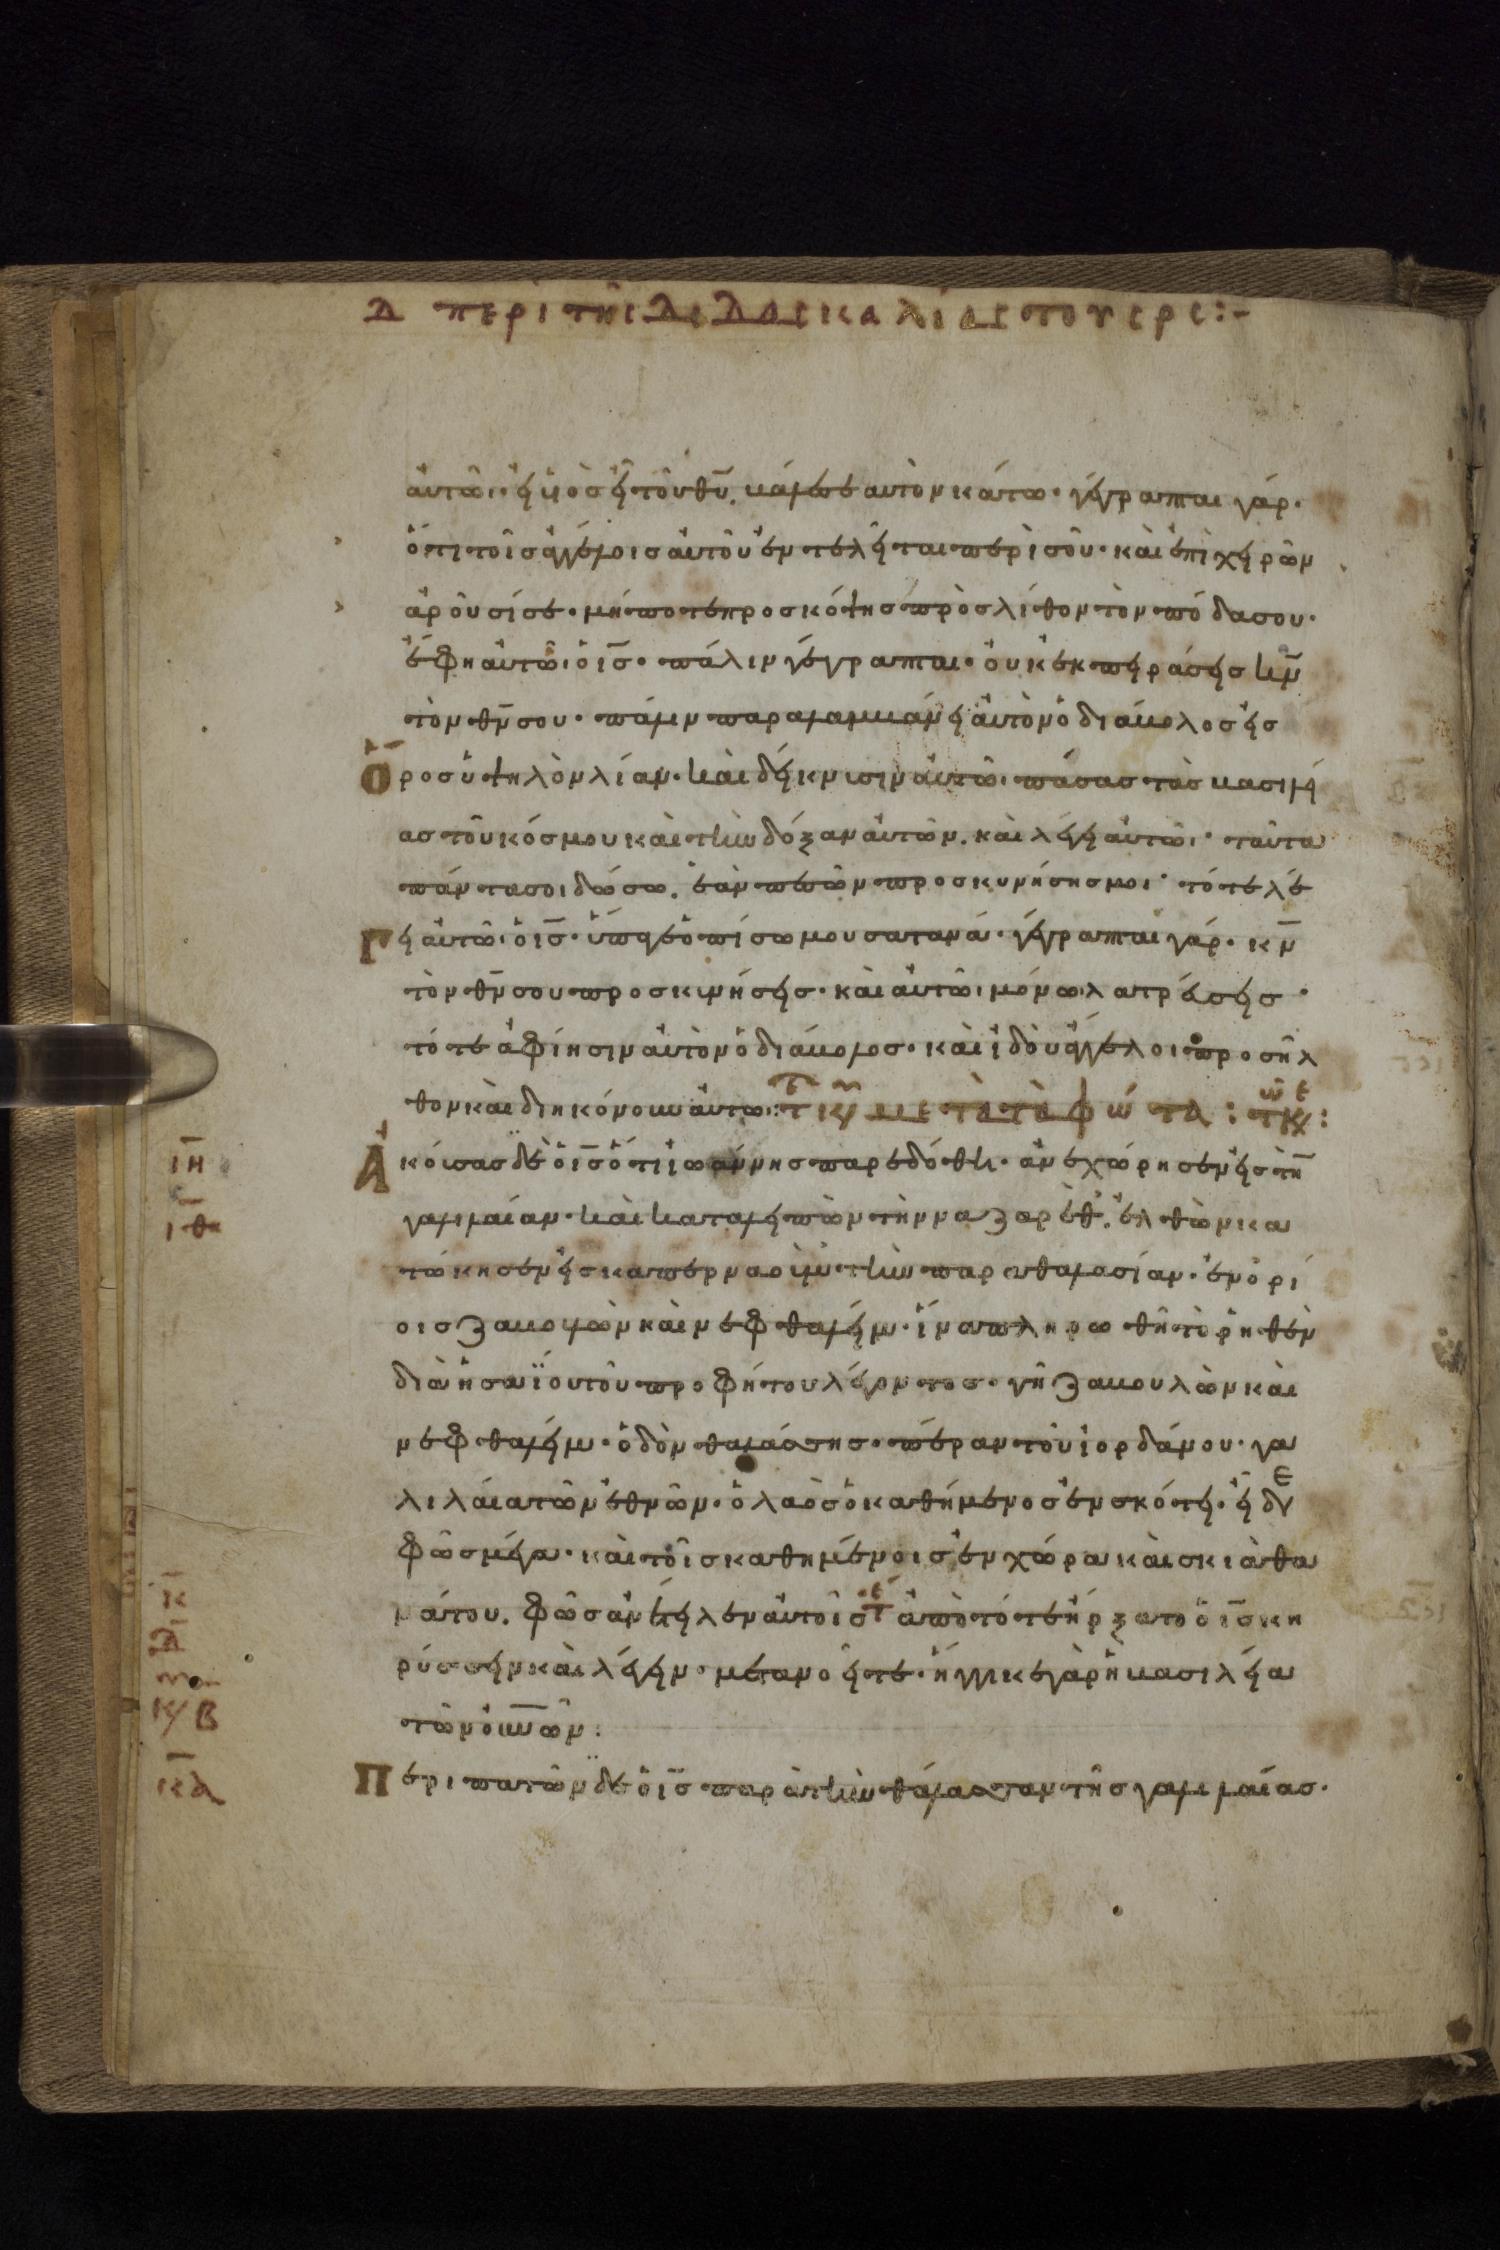 Δ περὶ τῆς διδασκαλίας τοῦ χρς:-
αὐτῶ· εἰ ὑὸς εἶ τοῦ θῡ. βάλε σεαυτὸν κάτω· γέγραπται γάρ·
ὅτι τοῖς ἀγγέλοις αὐτοῦ ἐντελεῖται περὶ σοῦ· καὶ ἐπὶ χειρῶν
ἀροῦσί σε· μήποτε προσκόψης πρὸς λίθον τὸν πόδα σου·
ἔφη αὐτῶ ὁ ις̄· πάλιν γέγραπται· οὐκ ἐκπειράσεις κν̄
τὸν θν̄ σου· πάλιν παραλαμβάνει αὐτὸν ὁ διάβολος εἰς
ὄρος ὑψηλὸν λίαν· καὶ δείκνυσιν αὐτῶ πάσας τὰς βασιλεί
ας τοῦ κόσμου καὶ τὴν δόξαν αὐτῶν. καὶ λέγει αὐτῶ· ταῦτα
πάντα σοι δώσω. ἐὰν πεσὼν προσκυνήσης μοι· τότε λέ
γει αὐτῶ ὁ ις̄· ὕπαγε ὀπίσω μου σατανᾶ· γέγραπται γάρ· κν̄
τὸν θν̄ σου προσκυνήσεις· καὶ αὐτῶ μόνω λατρεύσεις·
τότε ἀφίησιν αὐτὸν ὁ διάβολος· καὶ ἰδοὺ ἄγγελοι προσῆλ
θον καὶ διηκόνουν αὐτῶ: τ κυ μετὰ τὰ φῶτα: τκ:
Ἀκούσας δὲ ὁ ις̄ ὅτι ἰωάννης παρεδόθη· ἀνεχώρησεν εἰς τὴν
γαλιλαίαν· καὶ καταλειπὼν τὴν ναζαρέθ. ἐλθὼν κα
τώκησεν εἰς καπερναοὺμ τὴν παραθαλασίαν· ἐν ὁρί
οις ζαβουλὼν καὶ νεφθαλείμ· ἵνα πληρωθῆ τὸ ῥηθὲν
διὰ ἡσαΐου τοῦ προφήτου λέγοντος· γῆ ζαβουλὼν καὶ
νεφθαλείμ· ὁδὸν θαλάσσης· πέραν τοῦ ἰορδάνου· γα
λιλαία τῶν ἐθνῶν· ὁ λαὸς ὁ καθήμενος ἐν σκότει· εἶδε
φῶς μέγα· καὶ τοῖς καθημένοις ἐν χώρα καὶ σκιᾶ θα
νάτου. φῶς ἀνέτειλεν αὐτοῖς τε ἀπὸ τότε ἤρξατο ὁ ις̄ κη
ρύσσειν καὶ λέγειν· μετανοεῖτε· ἤγγικε γὰρ ἡ βασιλεία
τῶν οὐνῶν:
Περιπατῶν δὲ ὁ ις̄ παρὰ τὴν θάλασσαν τῆς γαλιλαίας·
ιη
ιθ
κ
Δ
κυ Β
κα